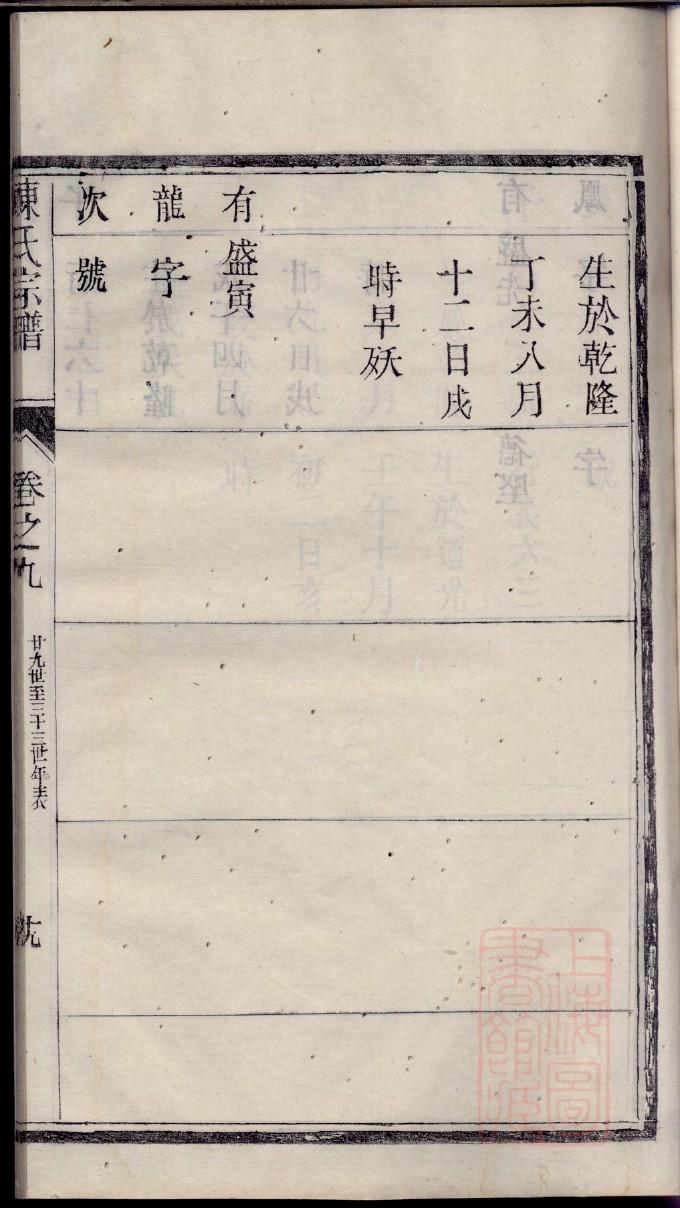 生於乾隆
丁未八月
十二日戌
時早殀
有盛寅
龍字
次號
陳氏宗譜
卷之九
廿九世至三十三世年表
上海圖書館藏